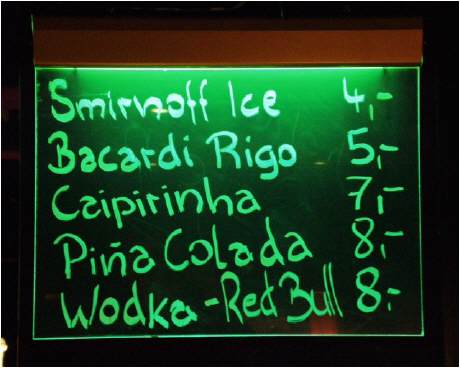 Smirnoff Ice 4,-
Bacardi Rigo 5,-
Caipirinha 7,-
Piña Colada 8,-
Wodka-Red Bull 8,-